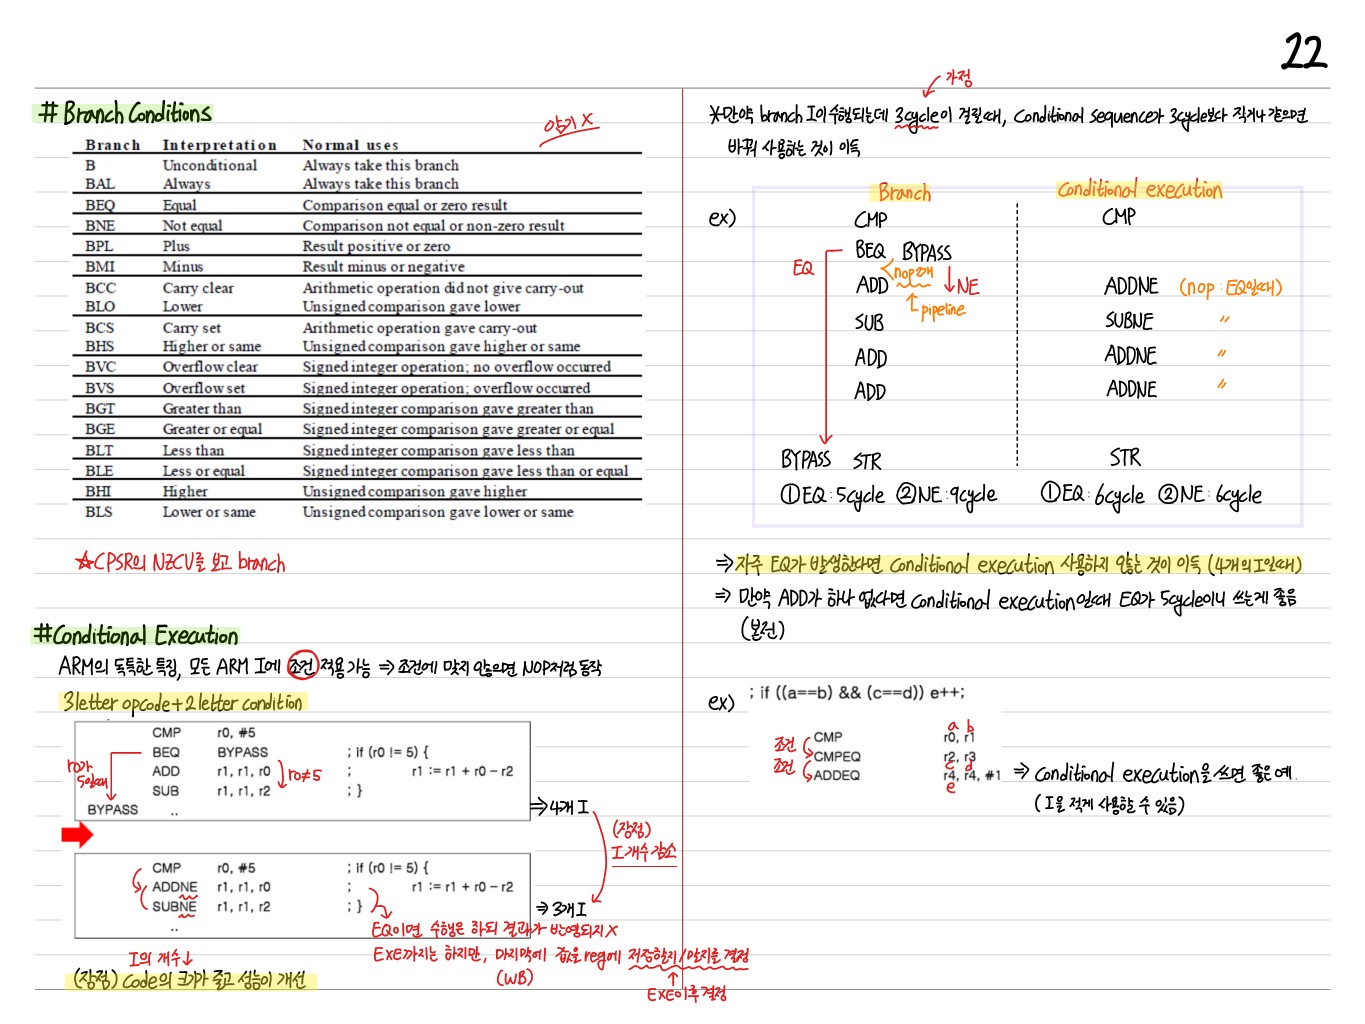 22
# Branch Conditions
암기 X
Branch Interpretation Normal uses
B Unconditional Always take this branch
BAL Always Always take this branch
BEQ Equal Comparison equal or zero result
BNE Not equal Comparison not equal or non-zero result
BPL Plus Result positive or zero
BMI Minus Result minus or negative
BCC Carry clear Arithmetic operation did not give carry-out
BLO Lower Unsigned comparison gave lower
BCS Carry set Arithmetic operation gave carry-out
BHS Higher or same Unsigned comparison gave higher or same
BVC Overflow clear Signed integer operation; no overflow occurred
BVS Overflow set Signed integer operation; overflow occurred
BGT Greater than Signed integer comparison gave greater than
BGE Greater or equal Signed integer comparison gave greater or equal
BLT Less than Signed integer comparison gave less than
BLE Less or equal Signed integer comparison gave less than or equal
BHI Higher Unsigned comparison gave higher
BLS Lower or same Unsigned comparison gave lower or same
☆CPSR의 NZCV를 보고 branch
#Conditional Execution
ARM의 독특한 특징, 모든 ARM I에 조건 적용 가능 ⇒ 조건에 맞지 않으면 NOP처럼 동작
3letter opcode+2letter condition
CMP r0, #5
BEQ BYPASS ; if (r0 != 5) {
ADD r1, r1, r0 ; r1 := r1 + r0 - r2
SUB r1, r1, r2 ; }
BYPASS ..
r0가 5일때
r0≠5
⇒4개 I
(장점)
I 개수 감소
CMP r0, #5 ; if (r0 != 5) {
ADDNE r1, r1, r0 ; r1 := r1 + r0 - r2
SUBNE r1, r1, r2 ; }
..
⇒3개 I
EQ이면 수행은 하되 결과가 반영되지 X
EXE까지는 하지만, 마지막에 값을 reg에 저장할지/말지를 결정
(WB)
EXE이후 결정
I의 개수↓
(장점) Code의 크기가 줄고 성능이 개선
가정
*만약 branch I이 수행되는데 3cycle이 걸릴때, Conditional sequence가 3cycle보다 적거나 같으면
바꿔 사용하는 것이 이득
ex)
Branch Conditional execution
CMP CMP
BEQ BYPASS
EQ
nop 2개
ADD ↓NE ADDNE (nop : EQ일때)
pipeline
SUB SUBNE 〃
ADD ADDNE 〃
ADD ADDNE 〃
BYPASS STR STR
①EQ : 5cycle ②NE : 9cycle ①EQ : 6cycle ②NE : 6cycle
⇒ 자주 EQ가 발생한다면 Conditional execution 사용하지 않는 것이 이득 (4개의 I일때)
⇒ 만약 ADD가 하나 없다면 conditional execution일때 EQ가 5cycle이니 쓰는게 좋음
(본전)
ex)
; if ((a==b) && (c==d)) e++;
a b
CMP r0, r1
조건
CMPEQ r2, r3
조건
c d
ADDEQ r4, r4, #1
e
⇒ Conditional execution을 쓰면 좋은 예.
(I을 적게 사용할 수 있음)